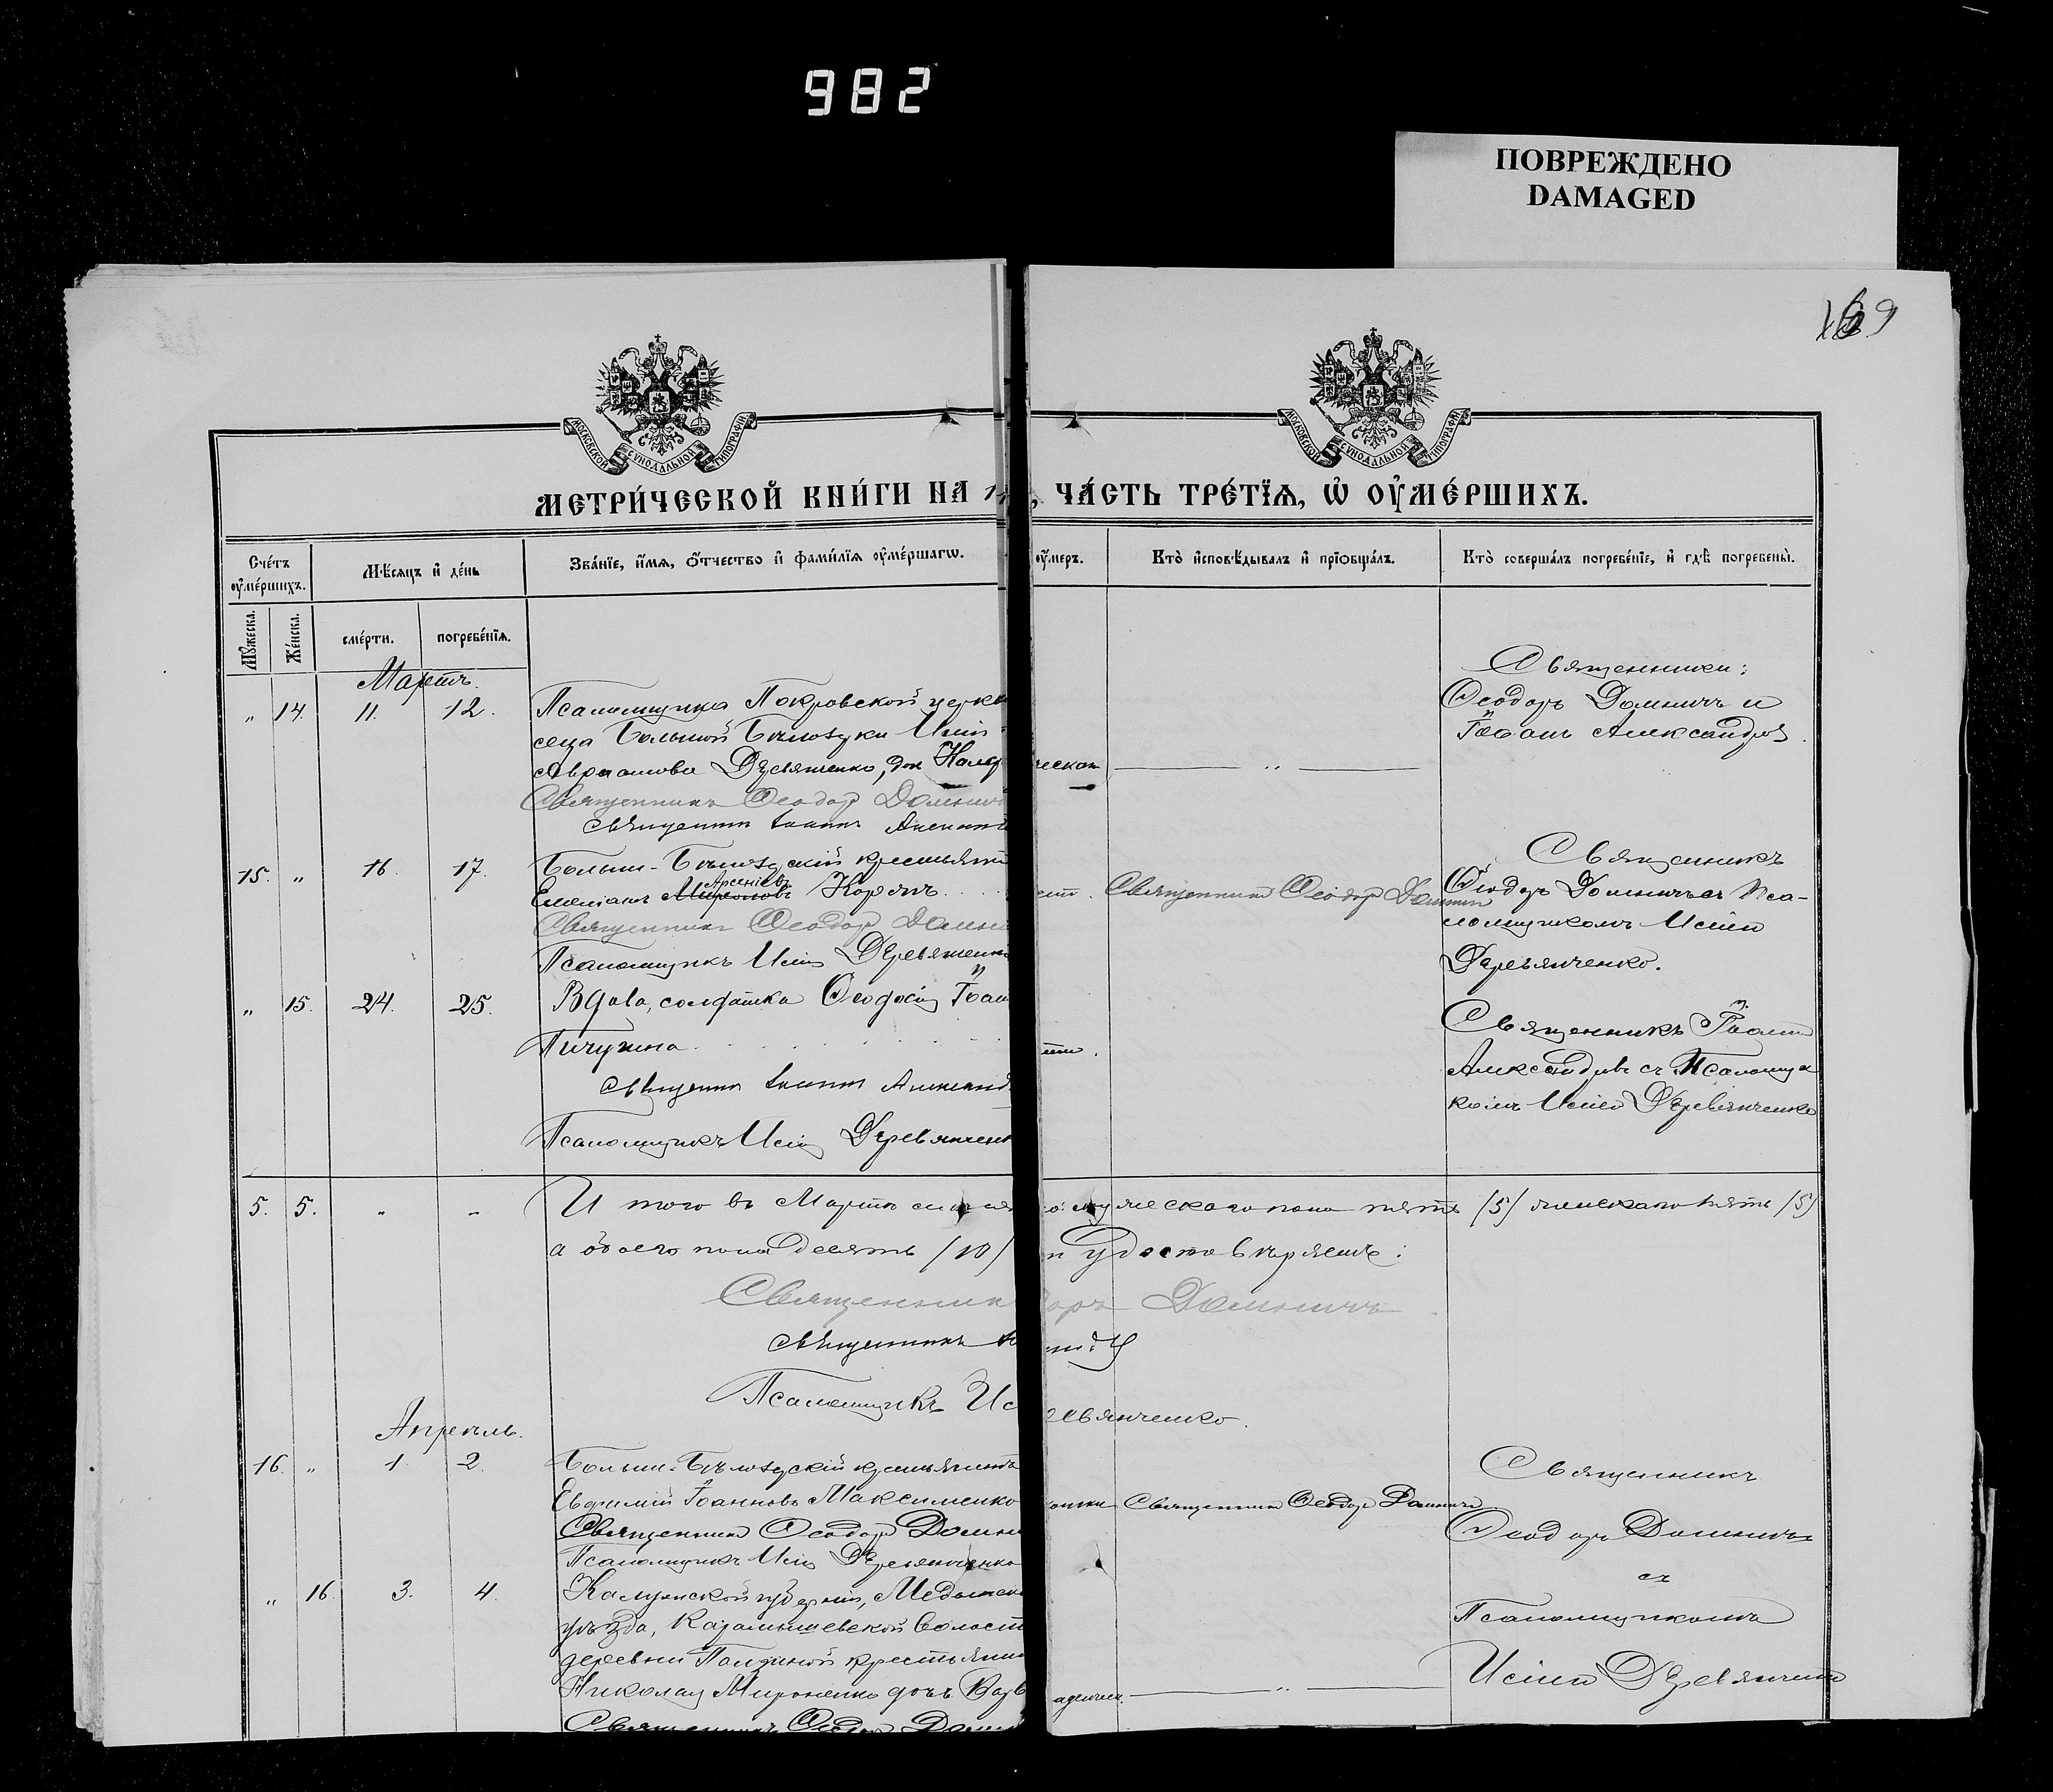 982
ПОВРЕЖДЕНО
DAMAGED
169
МОСКОВСКОЙ СѴНОДАЛЬНОЙ ТИПОГРАФІИ
МОСКОВСКОЙ СѴНОДАЛЬНОЙ ТИПОГРАФІИ
МЕТРИ́ЧЕСКОЙ КНИ́ГИ НА 1
, ЧА́СТЬ ТРЕ́ТЇѦ, Ѡ҆ ОУ҆МЕ́РШИХЪ.
Сче́тъ оу҆ме́ршихъ.
Мѣсяцъ и҆ де́нь
Зва́нїе, и҆́мѧ, ѻ҆́тчество и҆ фами́лїѧ оу҆ме́ршагѡ.
оу҆́меръ.
Кто̀ и҆сповѣ́дывалъ и҆ прїѡбща́лъ.
Кто̀ соверша́лъ погребе́нїе, и҆ гдѣ̀ погребены̀.
Мꙋ́жеска.
Же́нска.
сме́рти.
погребе́нїѧ.
Мартъ.
" 14. 11. 12.
Псаломщика Покровской церкв
села Большой Бѣлозерки Исіи
Авраамова Деревянченко, дочь
ческая
Священникъ Ѳеодоръ Домнич
Священникъ Іоаннъ
Священники:
Ѳеодоръ Домничъ и
Іоаннъ Александровъ.
15. " 16. 17.
Больше-Бѣлозерскій крестьянин
Арсеніевъ
Емеліанъ Мироновъ
Священникъ Ѳеодоръ Домни
Псаломщикъ Исія Деревянченк
Священникъ Ѳеодоръ Домничъ
Священникъ
Ѳеодоръ Домничъ съ Пса-
ломщикомъ Исіею
Деревянченко.
" 15. 24. 25.
Вдова, солдатка Ѳеодосія Іоан
Пичугина
Священникъ Іоаннъ Александ
Псаломщикъ Исія Деревянченк
Священникъ Іоаннъ
Александровъ съ Псаломщи
комъ Исіею Деревянченко
5. 5. " "
И того въ Мартѣ
мужескаго пола пять /5/ женскаго пять /5/
а обоего пола десять /10/
удостовѣряемъ:
Священник
доръ Домничъ
Священникъ
Псаломщикъ Ис
ревянченко.
Апрѣль.
16. " 1. 2.
Больше-Бѣлозерскій крестьянинъ
Евфимій Іоанновъ Максименко
Священникъ Ѳеодоръ Домни
Псаломщикъ Исія Деревянченко
Священникъ Ѳеодоръ Домничъ
Священникъ
Ѳеодоръ Домничъ
съ
Псаломщикомъ
Исіею Деревянченко
" 16. 3. 4.
Калужской губерніи, Медынска
уѣзда, Карамышевской волост
деревни крестьянин
Николая Мироненко дочь Варв
аденческ.
Священникъ Ѳеодоръ Домни